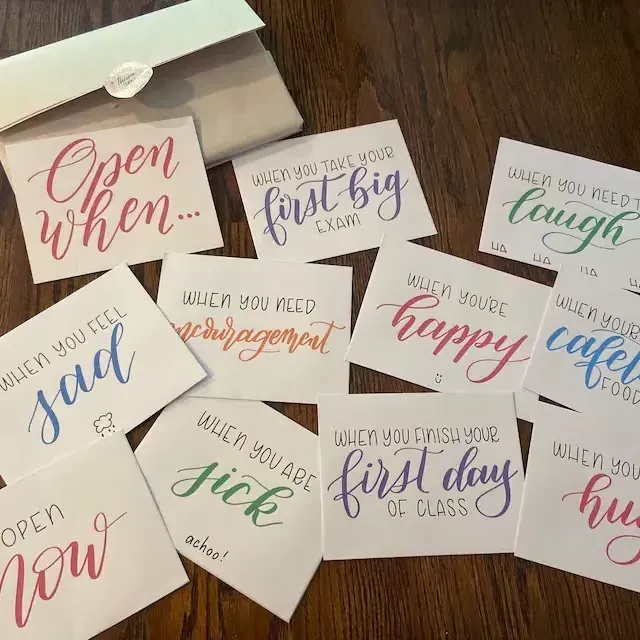 Open
when...
WHEN YOU TAKE YOUR
first big
EXAM
WHEN YOU NEED
laugh
HA HA HA HA
WHEN YOU FEEL
sad
WHEN YOU NEED
encouragement
WHEN YOU'RE
happy
FOOD
OPEN
now
WHEN YOU ARE
sick
achoo!
WHEN YOU FINISH YOUR
first day
OF CLASS
WHEN YOU